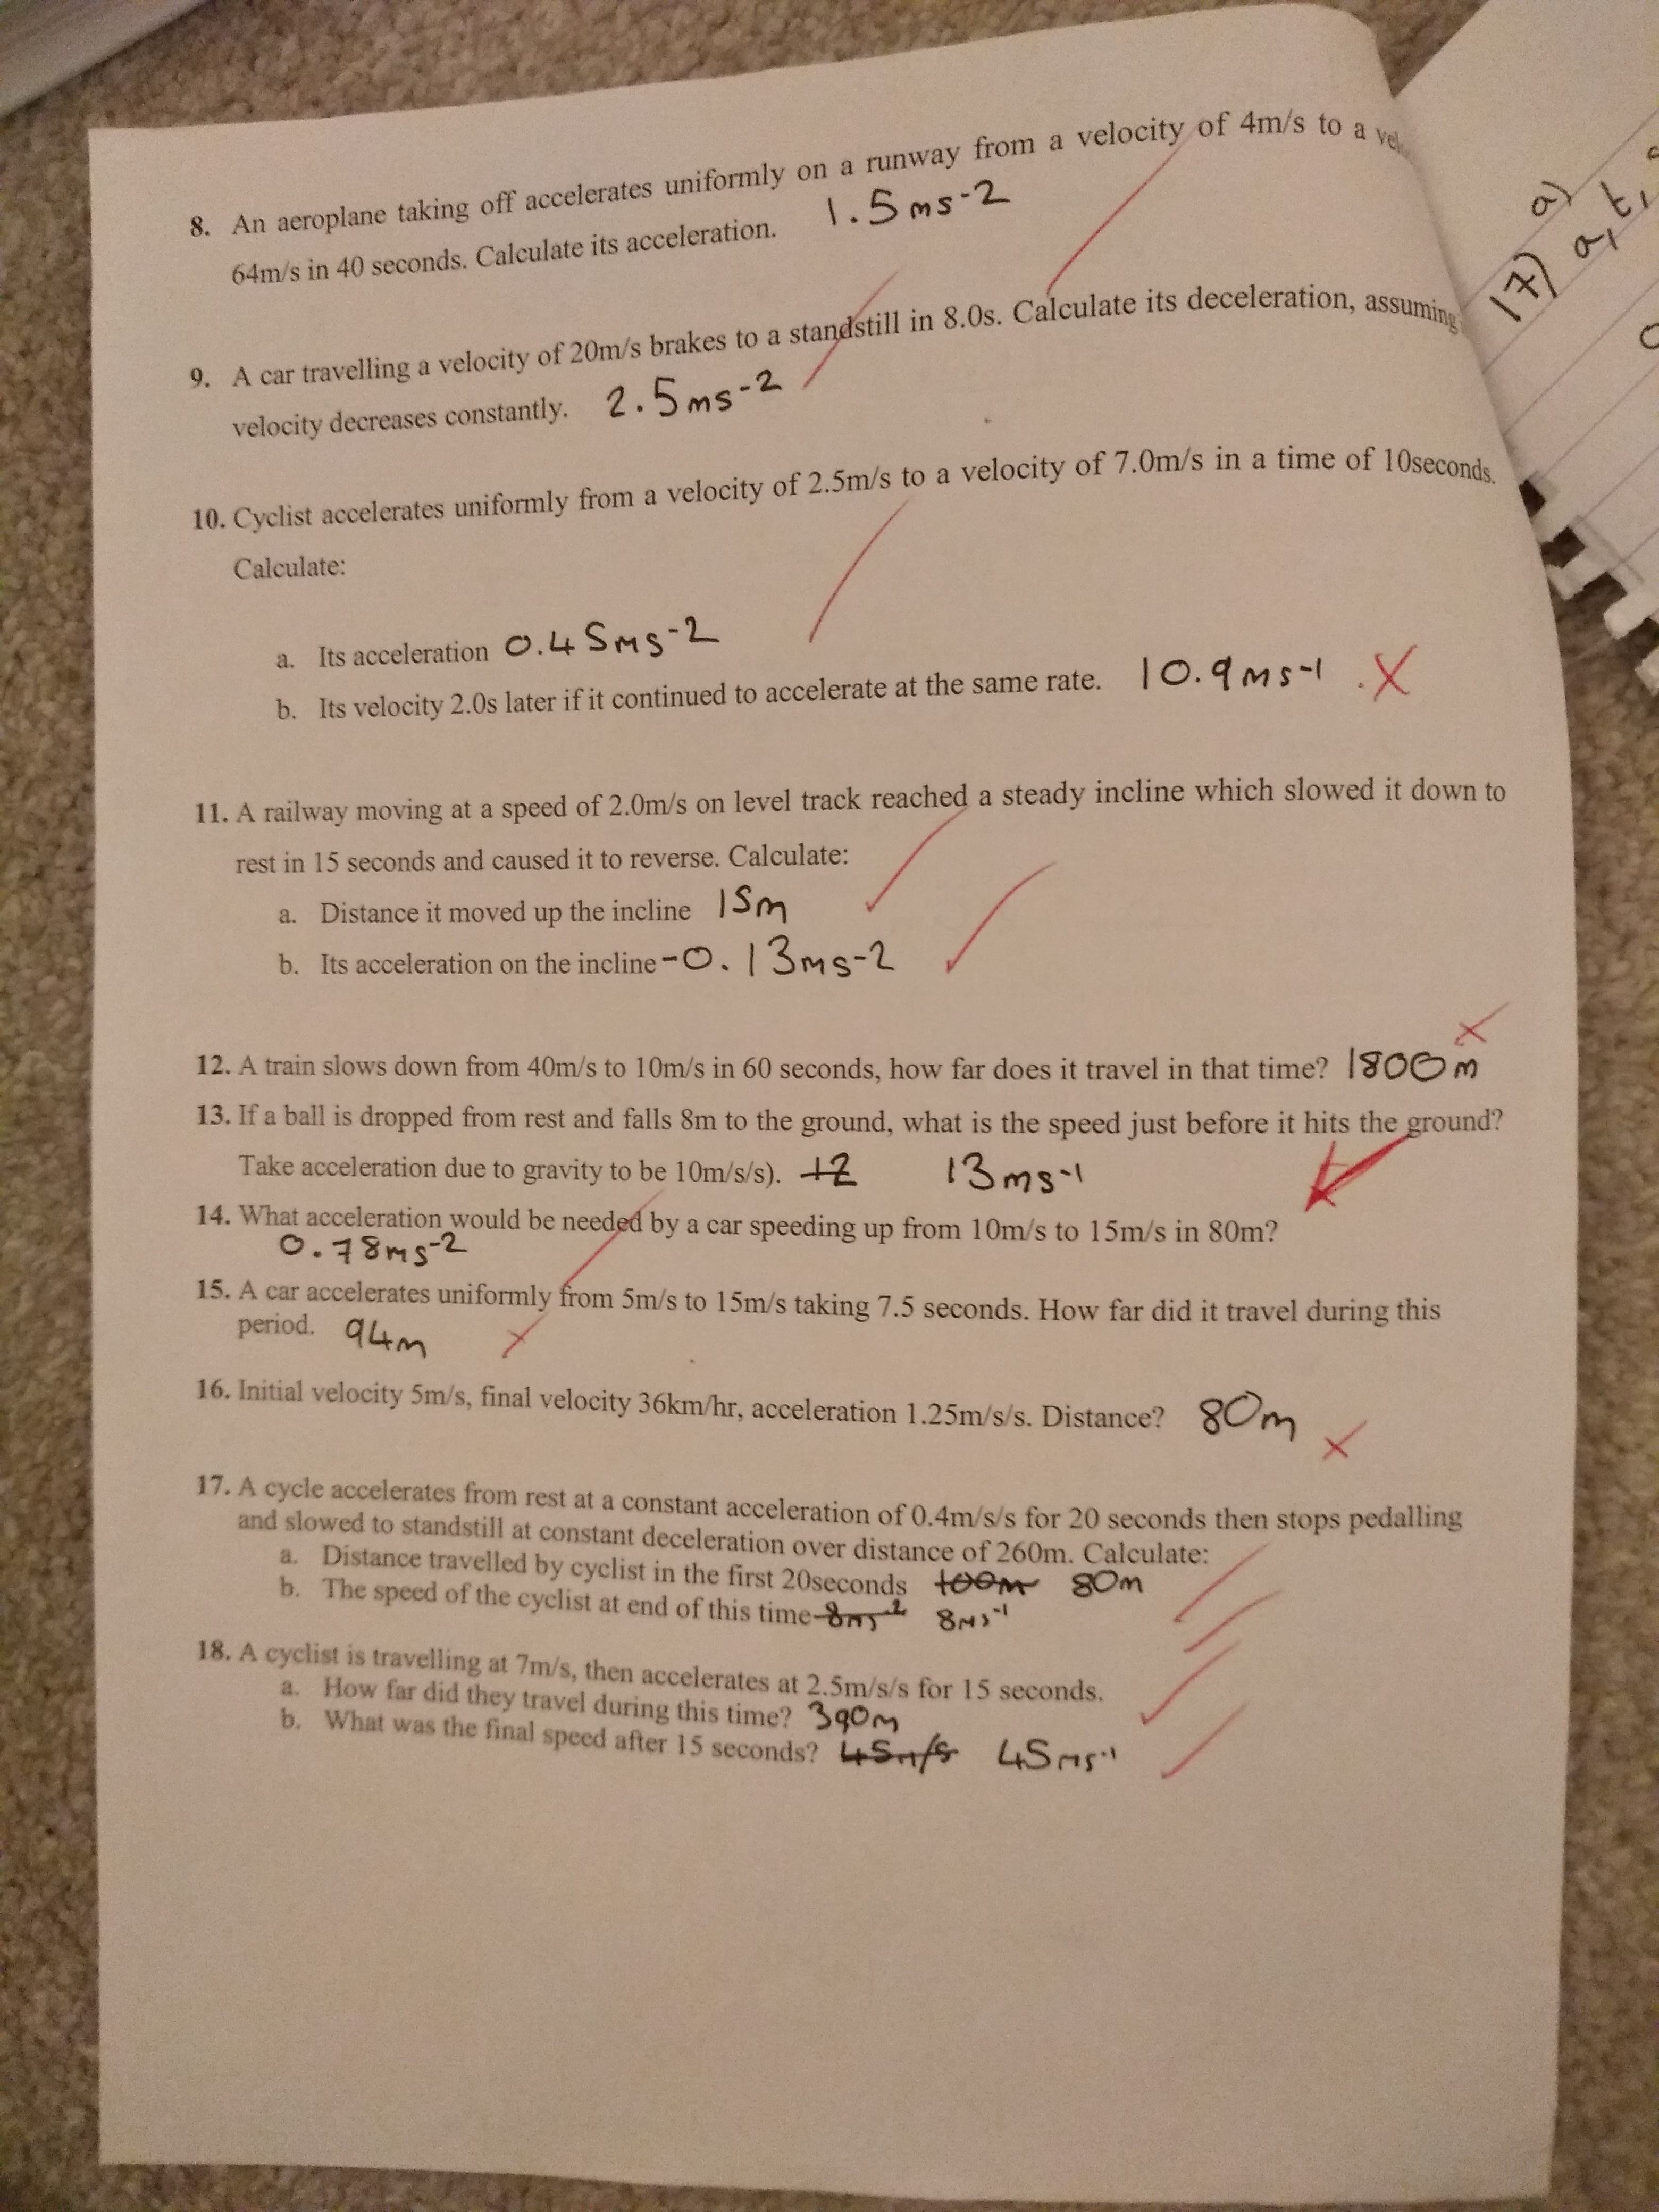 8. An aeroplane taking off accelerates uniformly on a runway from a velocity of 4m/s to a
64m/s in 40 seconds. Calculate its acceleration. 1.5ms-2
9. A car travelling a velocity of 20m/s brakes to a standstill in 8.0s. Calculate its deceleration, assuming
velocity decreases constantly. 2.5ms-2
10. Cyclist accelerates uniformly from a velocity of 2.5m/s to a velocity of 7.0m/s in a time of 10seconds.
Calculate:
a. Its acceleration 0.45ms-2
b. Its velocity 2.0s later if it continued to accelerate at the same rate. 10.9ms-1
11. A railway moving at a speed of 2.0m/s on level track reached a steady incline which slowed it down to
rest in 15 seconds and caused it to reverse. Calculate:
a. Distance it moved up the incline 15m
b. Its acceleration on the incline -0.13ms-2
12. A train slows down from 40m/s to 10m/s in 60 seconds, how far does it travel in that time? 1800m
13. If a ball is dropped from rest and falls 8m to the ground, what is the speed just before it hits the ground?
Take acceleration due to gravity to be 10m/s/s). 12 13ms-1
14. What acceleration would be needed by a car speeding up from 10m/s to 15m/s in 80m?
0.78ms-2
15. A car accelerates uniformly from 5m/s to 15m/s taking 7.5 seconds. How far did it travel during this
period. 94m
16. Initial velocity 5m/s, final velocity 36km/hr, acceleration 1.25m/s/s. Distance? 80m
17. A cycle accelerates from rest at a constant acceleration of 0.4m/s/s for 20 seconds then stops pedalling
and slowed to standstill at constant deceleration over distance of 260m. Calculate:
a. Distance travelled by cyclist in the first 20seconds 100m 80m
b. The speed of the cyclist at end of this time 8ms-2 8ms-1
18. A cyclist is travelling at 7m/s, then accelerates at 2.5m/s/s for 15 seconds.
a. How far did they travel during this time? 390m
b. What was the final speed after 15 seconds? 45m/s 45ms-1
17) a)
a, t,